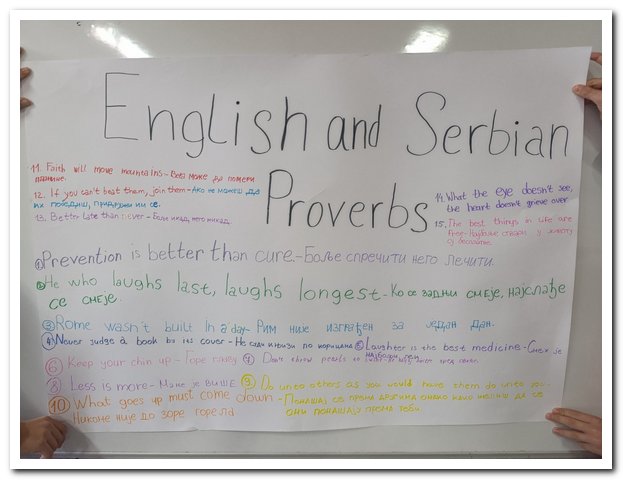 English and Serbian
Proverbs
11. Faith will move mountains - Вера може да помери
планине.
12. If you can't beat them, join them - Ако не можеш да
их победиш, придружи им се.
13. Better late than never - Боље икад, него никад.
14. What the eye doesn't see,
the heart doesn't grieve over
15. The best things in life are
free - Најбоље ствари у животу
су бесплатне.
1 Prevention is better than cure. - Боље спречити него лечити.
2 He who laughs last, laughs longest - Ко се задњи смеје, најслађе
се смеје.
3 Rome wasn't built in a day - Рим није изграђен за један дан.
4 Never judge a book by its cover - Не суди књизи по корицама
5 Laughter is the best medicine - Смех је
најбољи лек
6 Keep your chin up - Горе главу
7 Don't throw pearls to
8 Less is more - Мање је више
9 Do unto others as you would have them do unto you.
- Понашај се према другима онако како желиш да се
они понашају према теби.
10 What goes up must come down -
Никоме није до зоре горела